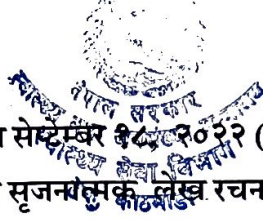 नेपाल सरकार
सेप्टेम्बर १८, २०२२ (
स्वास्थ्य सेवा विभाग
सृजनात्मक लेख रचन
काठमाडौं